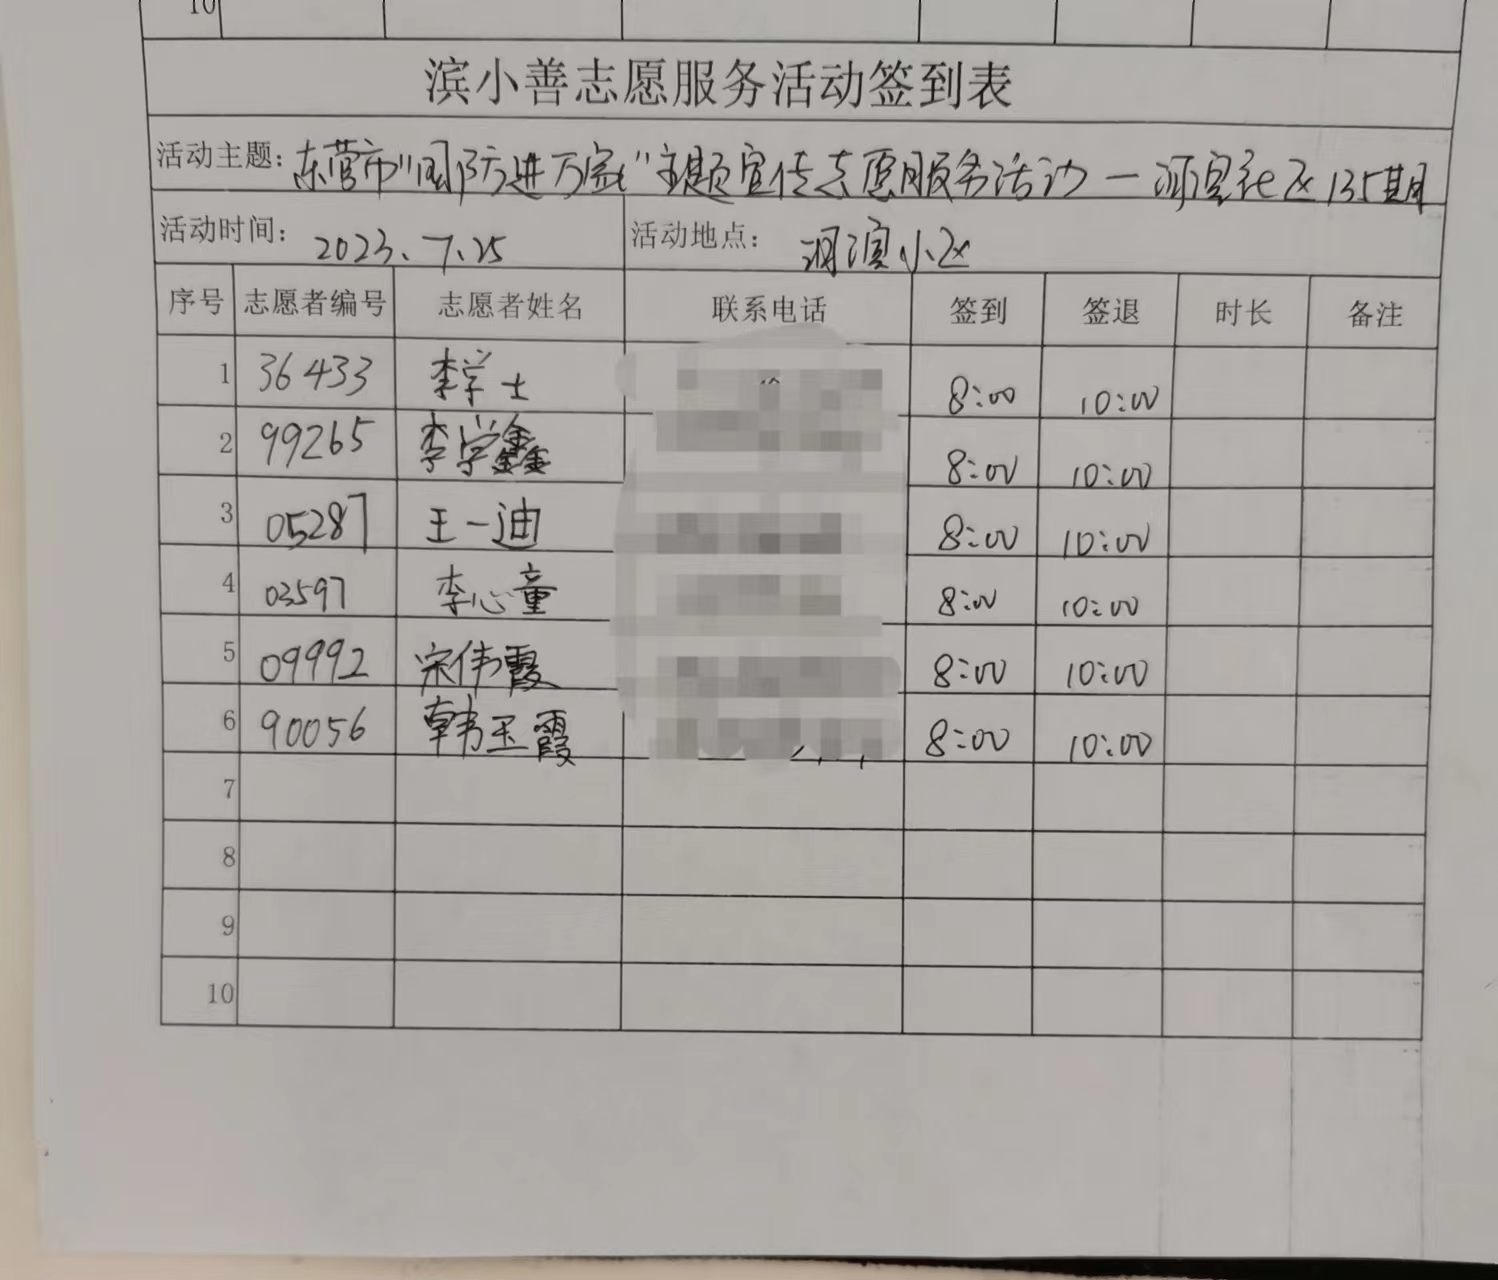 10
滨小善志愿服务活动签到表
活动主题: 东营市"国防进万家"主题宣传志愿服务活动—河滨社区135期
活动时间: 2023.7.25 活动地点: 河滨小区
序号 志愿者编号 志愿者姓名 联系电话 签到 签退 时长 备注
1 36433 李学士 8:00 10:00
2 99265 李学鑫 8:00 10:00
3 05287 王一迪 8:00 10:00
4 03597 李心童 8:00 10:00
5 09992 宋伟霞 8:00 10:00
6 90056 韩玉霞 8:00 10:00
7
8
9
10